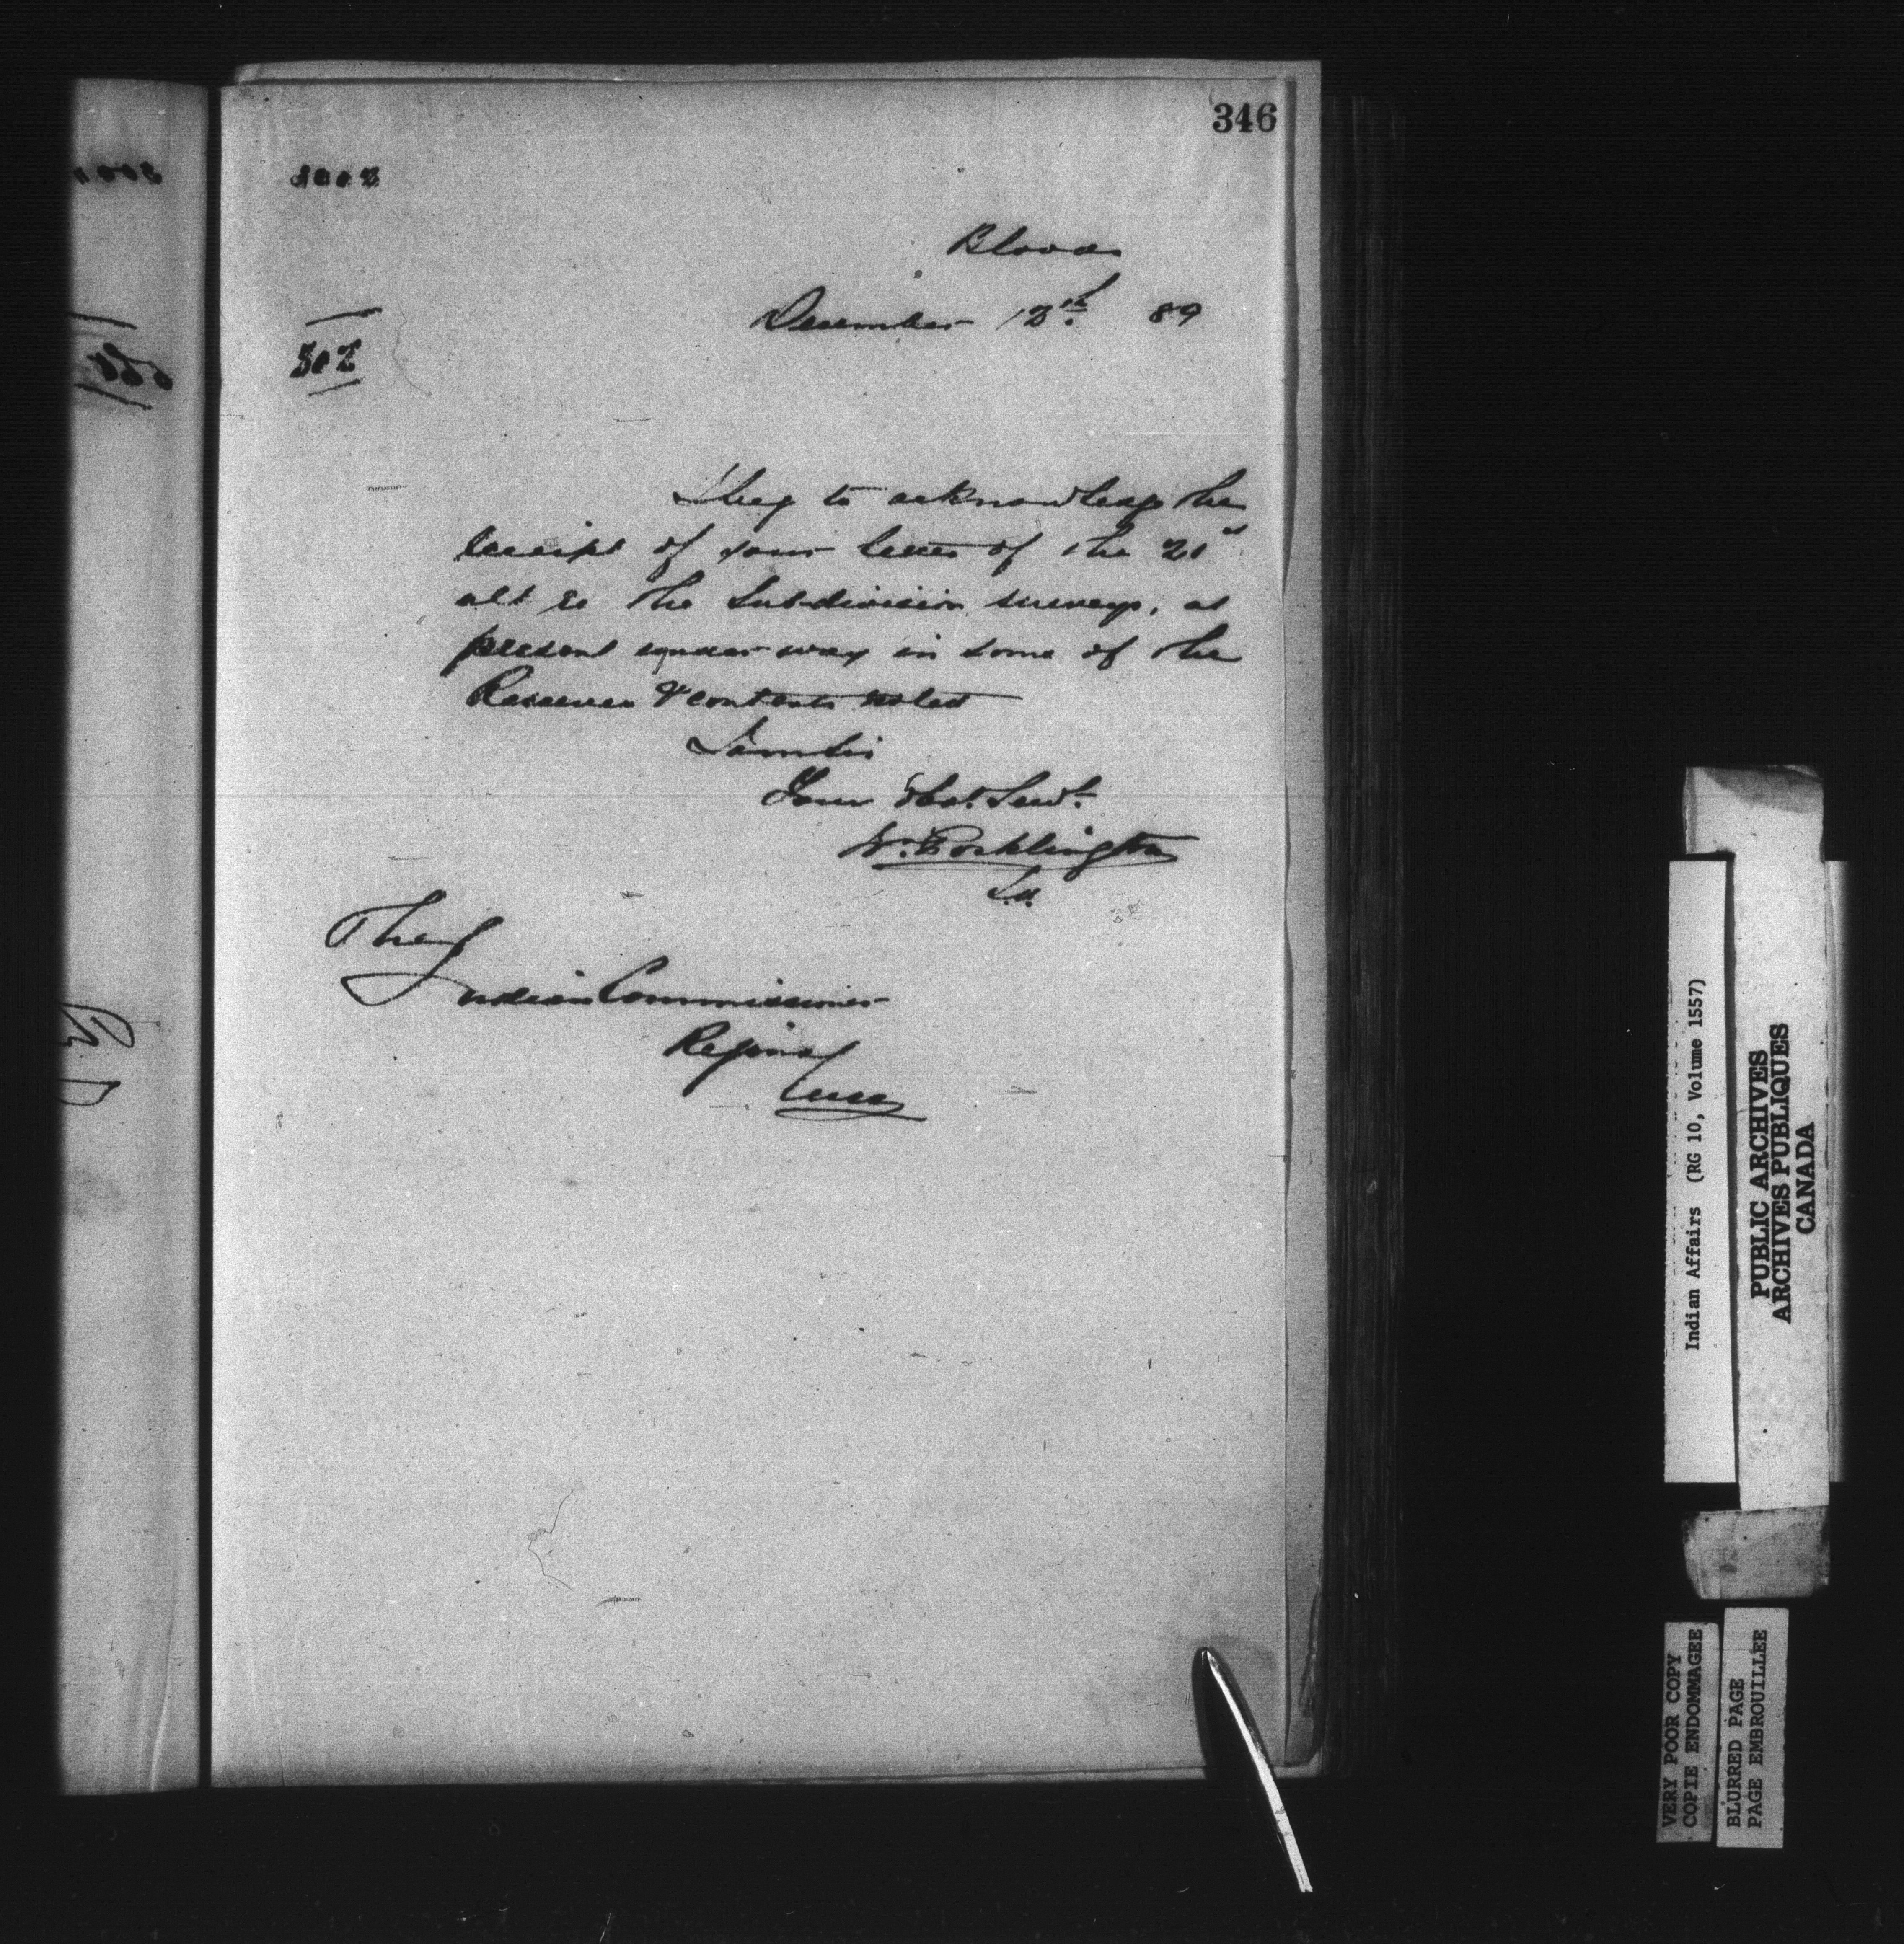 346
Blood
December 12th 89
302
I beg to acknowledge the
receipt of your letter of the 21st
ult re the Subdivision surveys, at
present under way in some of the
Reserves & contents noted
I am Sir
Your Obdt. Servt.
W. Pocklington
The
Indian Commissioner
Regina
Indian Affairs (RG 10, Volume 1557)
PUBLIC ARCHIVES
ARCHIVES PUBLIQUES
CANADA
VERY POOR COPY
COPIE ENDOMMAGEE
BLURRED PAGE
PAGE EMBROUILLEE